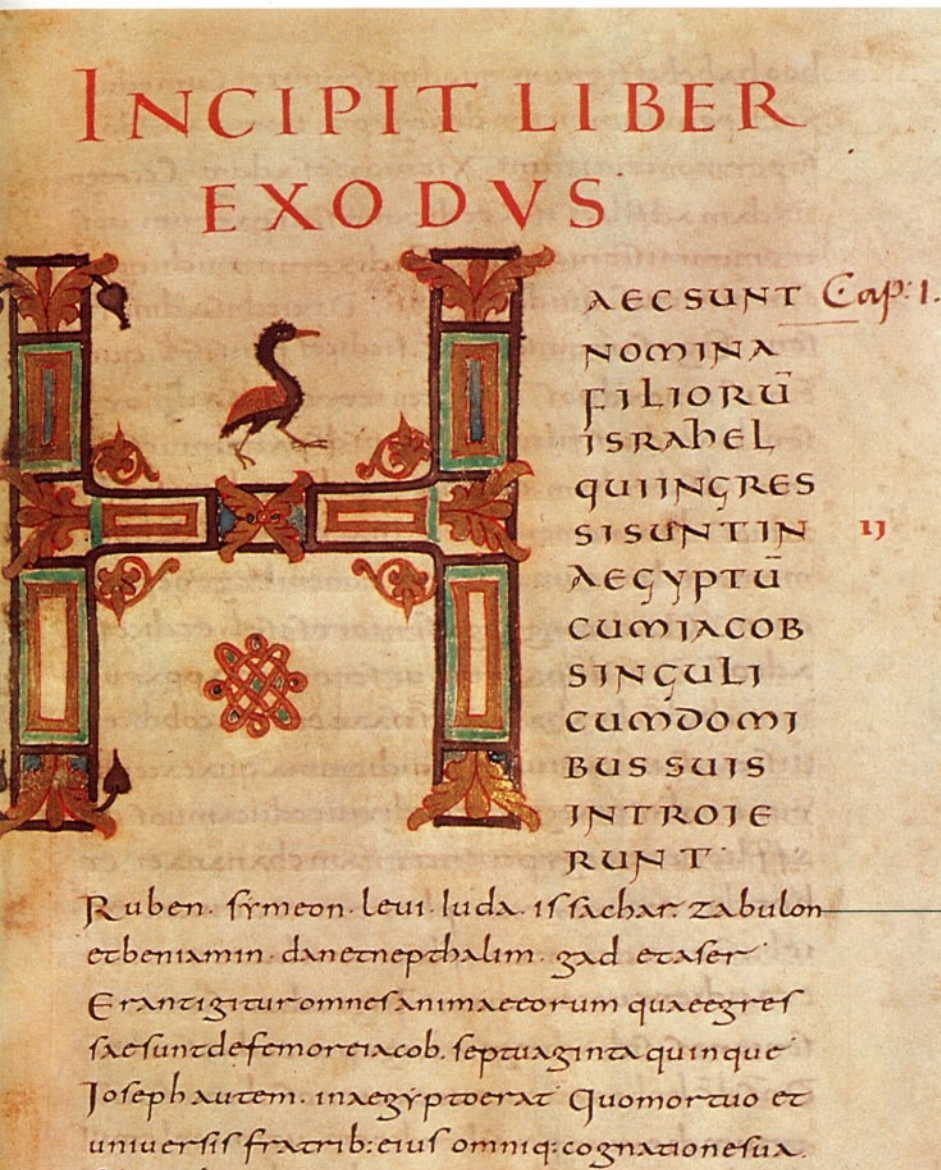 INCIPIT LIBER
EXODVS
HAECSUNT Cap: 1.
NOMINA
FILIORU̅
ISRAHEL
QUIINGRES
SISUNTIN IJ
AEGYPTU̅
CUMIACOB
SINGULI
CUMDOMI
BUS SUIS
INTROIE
RUNT·
Ruben· symeon· leui· Iuda· issachar· zabulon
etbeniamin· danetnepthalim· gad etaser
Erantigituromnesanimaeeorum quaeegres
saesuntdefemoreiacob. septuaginta quinque
Ioseph autem· inaegyptoerat Quomortuo et
uniuersis fratrib: eius omniq: cognationesua.